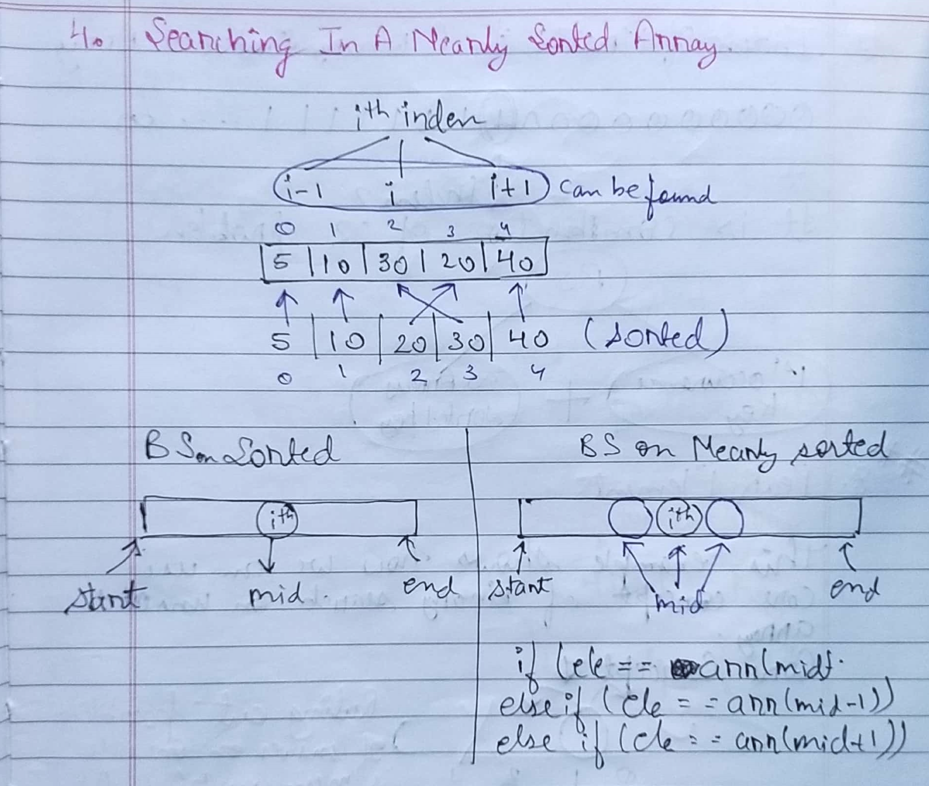 4. Searching In A Nearly Sorted Array.
ith index
i-1 i i+1 can be found
0 1 2 3 4
5 10 30 20 40
5 10 20 30 40 (sorted)
0 1 2 3 4
BS on Sorted
ith
start mid. end
BS on Nearly sorted
ith
start mid end
if (ele == arr(mid).
else if (ele == arr(mid-1))
else if (ele == arr(mid+1))